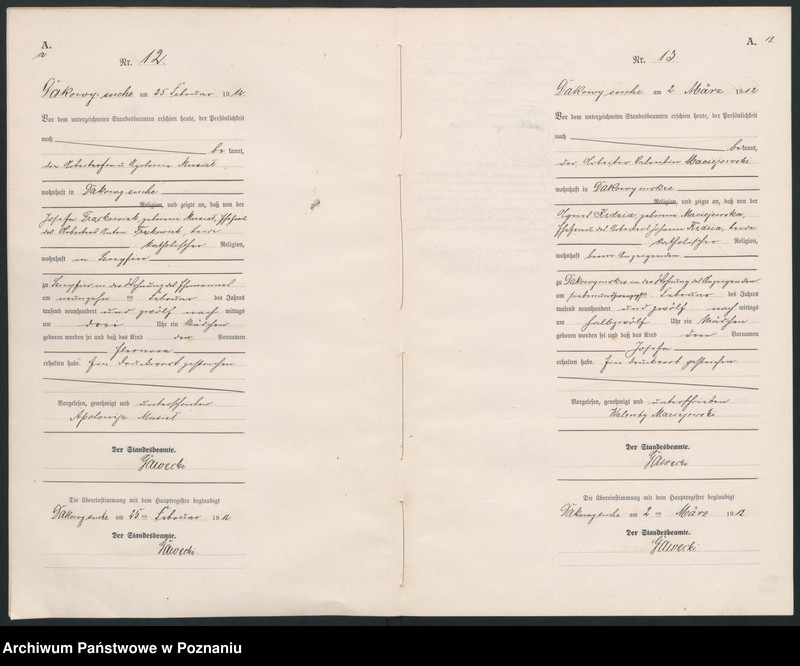 A.
Nr. 12.
Dakowy suche am 25 Februar 1912.
Vor dem unterzeichneten Standesbeamten erschien heute, der Persönlichkeit
nach
bekannt,
die Arbeiterfrau Apolonia Musial
wohnhaft in Dakowy suche
Religion, und zeigte an, daß von der
Josefa geborene Musial, Ehefrau
des Arbeiters Anton beide
katholischer Religion,
wohnhaft in
zu in der Wohnung des Ehemannes
am neunzehn ten Februar des Jahres
tausend neunhundert und zwölf nach mittags
um drei Uhr ein Mädchen
geboren worden sei und daß das Kind den Vornamen
Eleonora
erhalten habe. Ein Druckwort gestrichen
Vorgelesen, genehmigt und unterschrieben
Apolonija Musial
Der Standesbeamte.
Gawecki
Die Übereinstimmung mit dem Hauptregister beglaubigt
Dakowy suche am 25 ten Februar 1912
Der Standesbeamte.
Gawecki.
A. 13.
Nr. 13.
Dakowy suche am 2 März 1912
Vor dem unterzeichneten Standesbeamten erschien heute, der Persönlichkeit
nach
bekannt,
der Arbeiter Valentin Maciejewski
wohnhaft in Dakowymokre
Religion, und zeigte an, daß von der
Agnes Kedzia geborene Maciejewska,
Ehefrau des Arbeiters Johann Kedzia, beide
katholischer Religion,
wohnhaft beim Anzeigenden
zu Dakowymokre in der Wohnung des Anzeigenden
am siebenundzwanzigsten Februar des Jahres
tausend neunhundert und zwölf nach mittags
um halbzwölf Uhr ein Mädchen
geboren worden sei und daß das Kind den Vornamen
Josefa
erhalten habe. Ein Druckwort gestrichen
Vorgelesen, genehmigt und unterschrieben
Walenty Maciejewski
Der Standesbeamte.
Gawecki
Die Übereinstimmung mit dem Hauptregister beglaubigt
Dakowy suche am 2 ten März 1912
Der Standesbeamte.
Gawecki
Archiwum Państwowe w Poznaniu